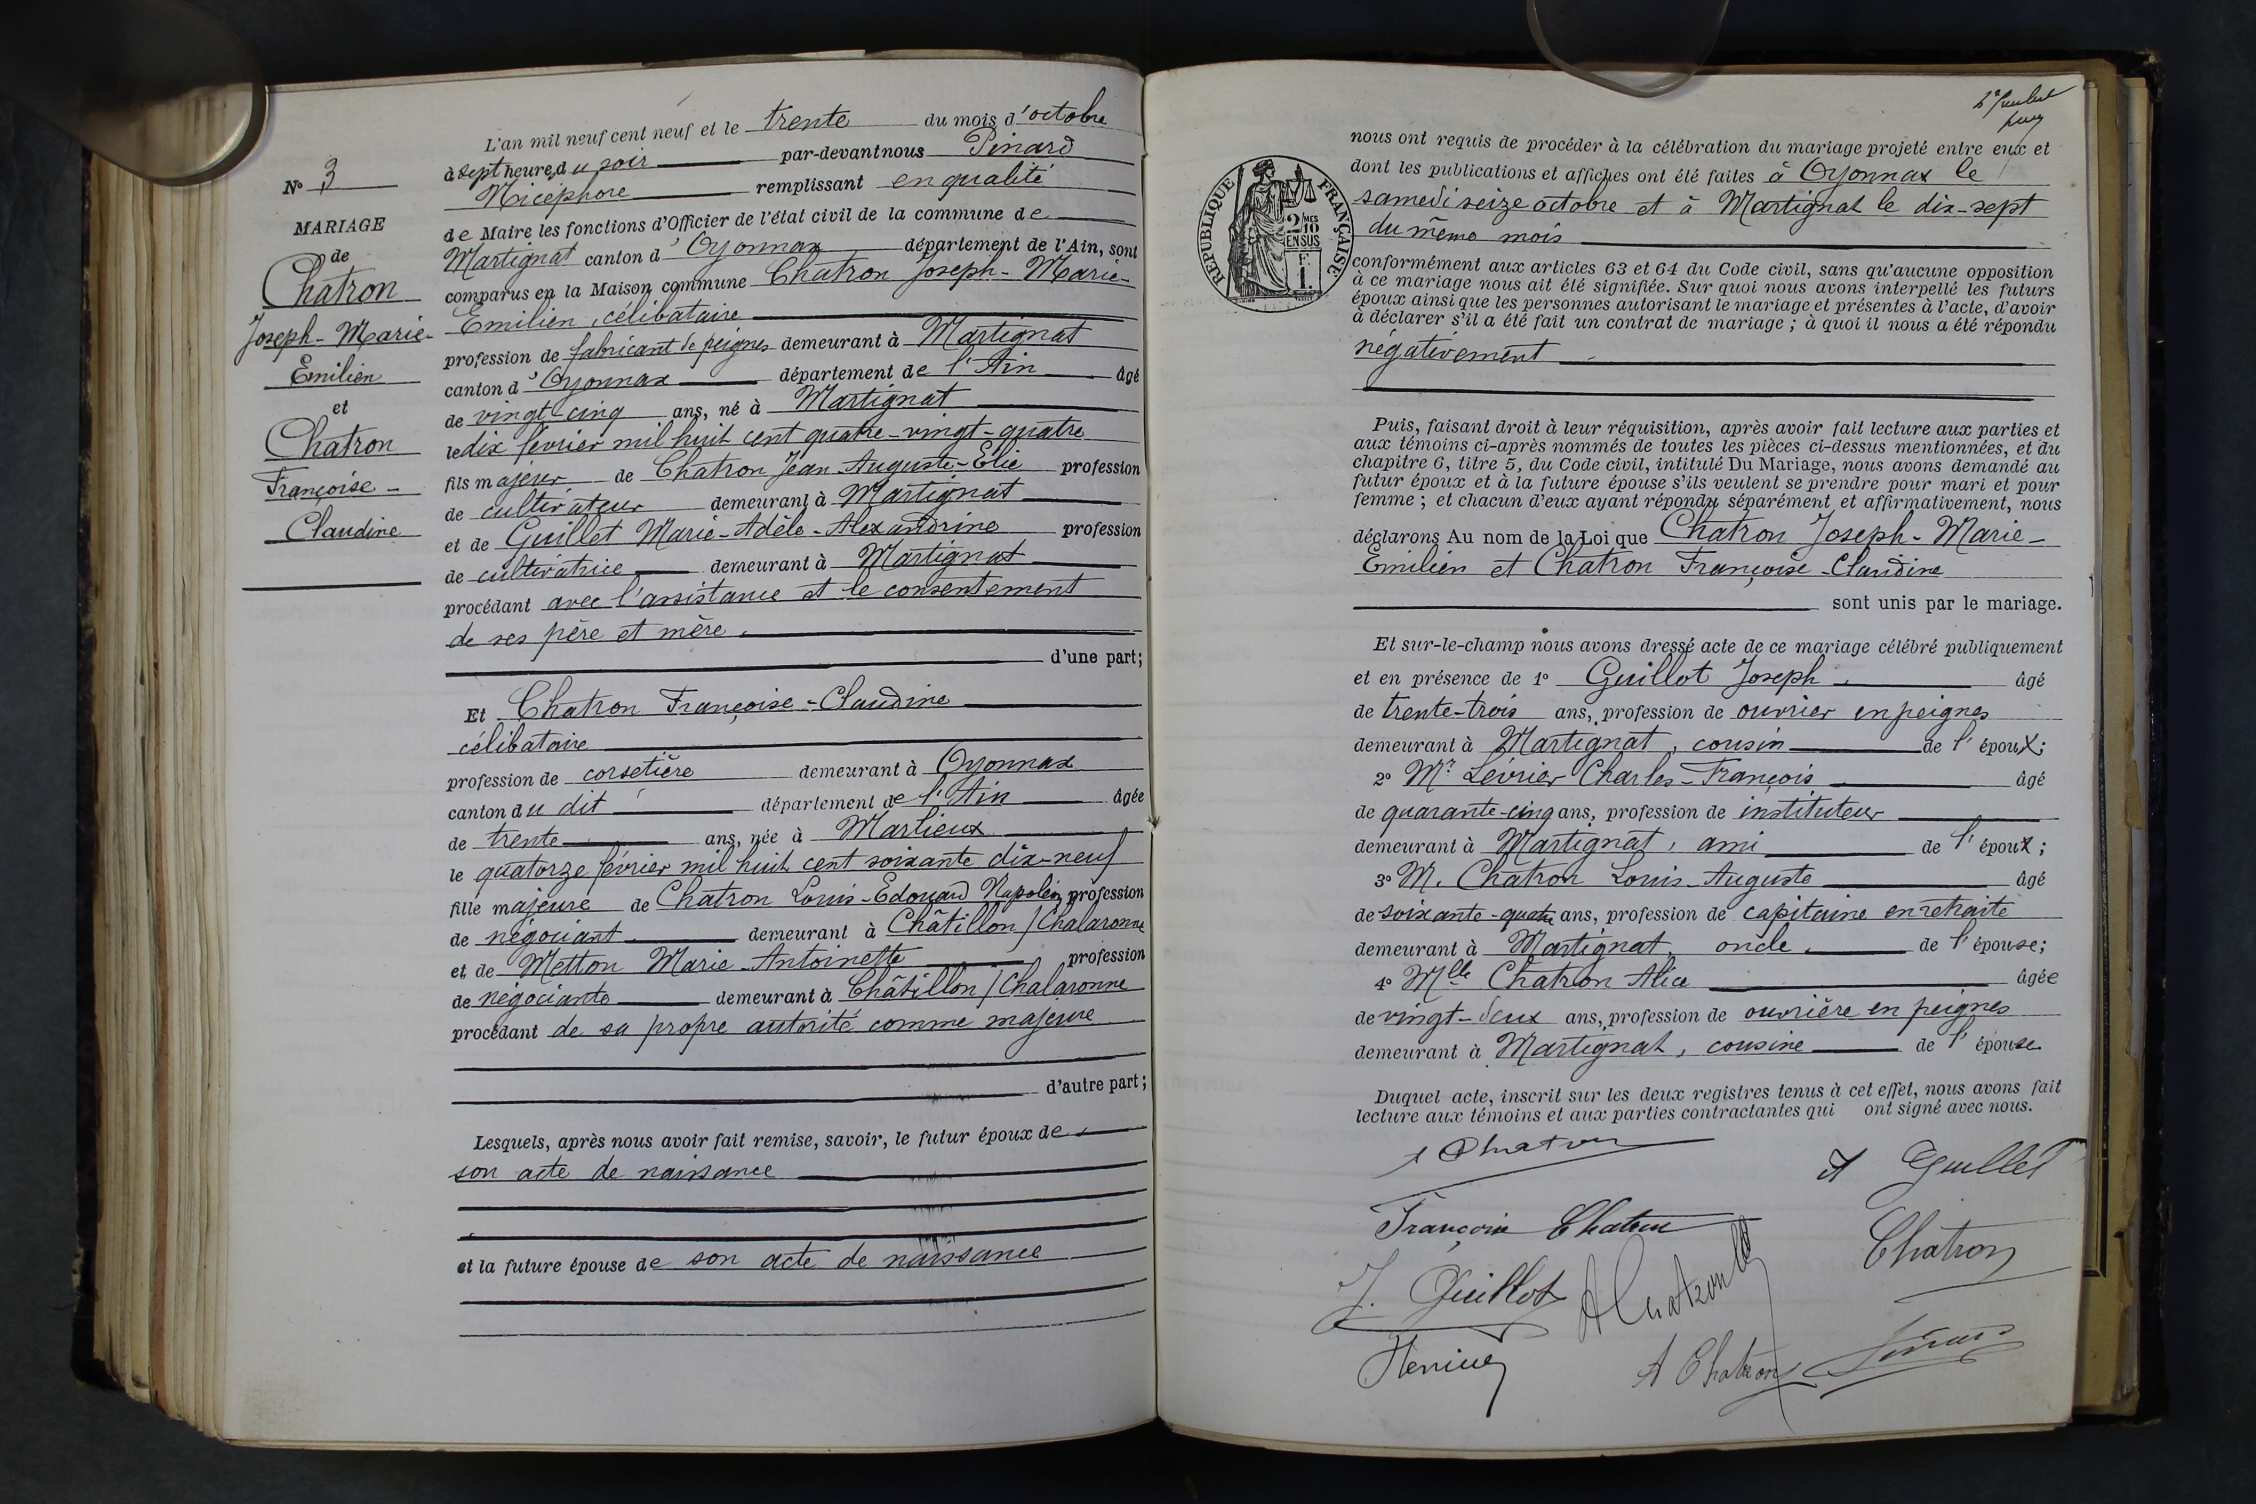 L'an mil neuf cent neuf et le trente du mois d'octobre
à sept heures du soir par-devant nous Pinard
Nicéphore remplissant en qualité
de Maire les fonctions d'Officier de l'état civil de la commune de
Martignat canton d'Oyonnax département de l'Ain, sont
comparus en la Maison commune Chatron Joseph-Marie-
Emilien, célibataire
profession de fabricant de peignes demeurant à Martignat
canton d'Oyonnax département de l'Ain âgé
de vingt-cinq ans, né à Martignat
le dix février mil huit cent quatre-vingt-quatre
fils majeur de Chatron Jean Auguste-Elie profession
de cultivateur demeurant à Martignat
et de Guillet Marie-Adèle-Alexandrine profession
de cultivatrice demeurant à Martignat
procédant avec l'assistance et le consentement
de ses père et mère.
d'une part;
Et Chatron Françoise-Claudine
célibataire
profession de corsetière demeurant à Oyonnax
canton du dit département de l'Ain âgée
de trente ans, née à Marlieux
le quatorze février mil huit cent soixante dix-neuf
fille majeure de Chatron Louis-Edouard Napoléon profession
de négociant demeurant à Châtillon s/Chalaronne
et de Metton Marie-Antoinette profession
de négociante demeurant à Châtillon s/Chalaronne
procédant de sa propre autorité comme majeure
d'autre part;
Lesquels, après nous avoir fait remise, savoir, le futur époux de
son acte de naissance
et la future épouse de son acte de naissance
N° 3
MARIAGE
de
Chatron
Joseph-Marie-
Emilien
et
Chatron
Françoise-
Claudine
nous ont requis de procéder à la célébration du mariage projeté entre eux et
dont les publications et affiches ont été faites à Oyonnax le
samedi seize octobre et à Martignat le dix-sept
du même mois
conformément aux articles 63 et 64 du Code civil, sans qu'aucune opposition
à ce mariage nous ait été signifiée. Sur quoi nous avons interpellé les futurs
époux ainsi que les personnes autorisant le mariage et présentes à l'acte, d'avoir
à déclarer s'il a été fait un contrat de mariage; à quoi il nous a été répondu
négativement
RÉPUBLIQUE FRANÇAISE
2/10MES
EN SUS
F.
1.
Puis, faisant droit à leur réquisition, après avoir fait lecture aux parties et
aux témoins ci-après nommés de toutes les pièces ci-dessus mentionnées, et du
chapitre 6, titre 5, du Code civil, intitulé Du Mariage, nous avons demandé au
futur époux et à la future épouse s'ils veulent se prendre pour mari et pour
femme; et chacun d'eux ayant répondu séparément et affirmativement, nous
déclarons Au nom de la Loi que Chatron Joseph-Marie-
Emilien et Chatron Françoise-Claudine
sont unis par le mariage.
Et sur-le-champ nous avons dressé acte de ce mariage célébré publiquement
et en présence de 1° Guillot Joseph âgé
de trente-trois ans, profession de ouvrier en peignes
demeurant à Martignat, cousin de l'époux;
2° Mr Lévrier Charles-François âgé
de quarante-cinq ans, profession de instituteur
demeurant à Martignat, ami de l'époux;
3° M. Chatron Louis-Auguste âgé
de soixante-quatre ans, profession de capitaine en retraite
demeurant à Martignat, oncle de l'épouse;
4° Mlle Chatron Alice âgée
de vingt-deux ans, profession de ouvrière en peignes
demeurant à Martignat, cousine de l'épouse
Duquel acte, inscrit sur les deux registres tenus à cet effet, nous avons fait
lecture aux témoins et aux parties contractantes qui ont signé avec nous.
Chatron
A Guillet
Françoise Chatron
Chatron
J. Guillot
A Chatron